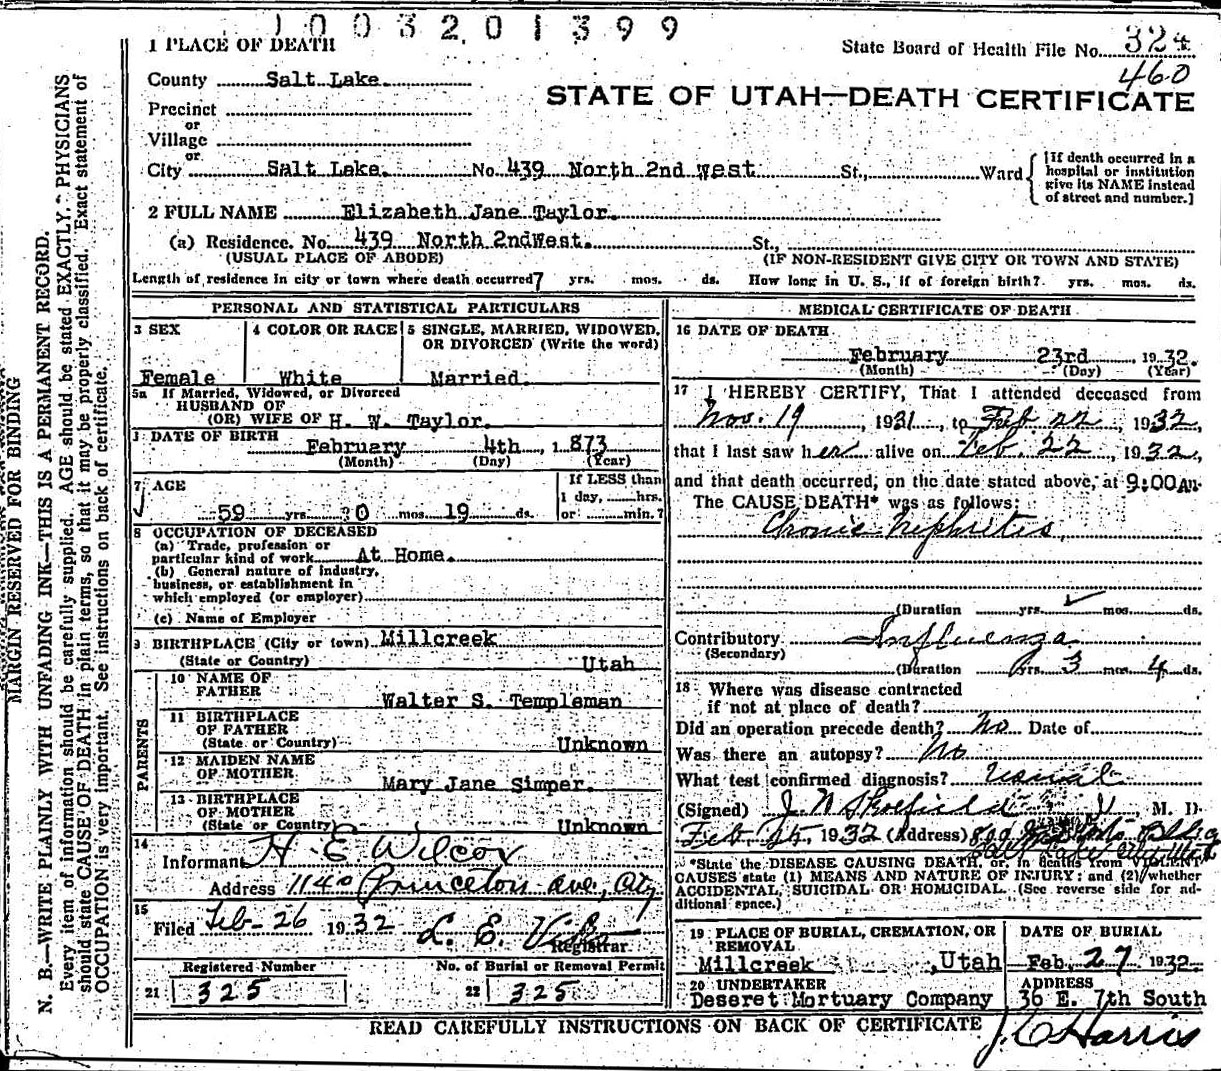 1003201399
1 PLACE OF DEATH
State Board of Health File No. 324
460
County Salt Lake.
STATE OF UTAH—DEATH CERTIFICATE
Precinct
or
Village
or
City Salt Lake. No. 439 North 2nd West St., Ward
[If death occurred in a hospital or institution give its NAME instead of street and number.]
2 FULL NAME Elizabeth Jane Taylor.
(a) Residence. No. 439 North 2nd West. St.,
(USUAL PLACE OF ABODE) (IF NON-RESIDENT GIVE CITY OR TOWN AND STATE)
Length of residence in city or town where death occurred 7 yrs. mos. ds. How long in U. S., if of foreign birth? yrs. mos. ds.
PERSONAL AND STATISTICAL PARTICULARS
3 SEX
Female
4 COLOR OR RACE
White
5 SINGLE, MARRIED, WIDOWED,
OR DIVORCED (Write the word)
Married.
5a If Married, Widowed, or Divorced
HUSBAND OF
(OR) WIFE OF H. W. Taylor.
DATE OF BIRTH
February 4th, 1873
(Month) (Day) (Year)
7 AGE
59 yrs. 0 mos. 19 ds.
If LESS than
1 day, hrs.
or min.?
8 OCCUPATION OF DECEASED
(a) Trade, profession or
particular kind of work At Home.
(b) General nature of industry,
business, or establishment in
which employed (or employer)
(c) Name of Employer
9 BIRTHPLACE (City or town) Millcreek
(State or Country) Utah
PARENTS
10 NAME OF
FATHER
Walter S. Templeman
11 BIRTHPLACE
OF FATHER
(State or Country) Unknown
12 MAIDEN NAME
OF MOTHER
Mary Jane Simper.
13 BIRTHPLACE
OF MOTHER
(State or Country) Unknown
14
Informant H E Wilcox
Address 1140 Princeton ave., City
15
Filed Feb-26 1932 L. E.
Registrar
Registered Number No. of Burial or Removal Permit
21 325 22 325
MEDICAL CERTIFICATE OF DEATH
16 DATE OF DEATH
February 23rd, 1932.
(Month) (Day) (Year)
17 I HEREBY CERTIFY, That I attended deceased from
Nov. 19, 1931, to Feb 22, 1932,
that I last saw her alive on Feb. 22, 1932,
and that death occurred, on the date stated above, at 9:00 AM
The CAUSE DEATH* was as follows:
Chronic Nephritis,
(Duration yrs. mos. ds.
Contributory Influenza
(Secondary)
(Duration yrs. 3 mos. 4 ds.
18 Where was disease contracted
if not at place of death?
Did an operation precede death? No Date of
Was there an autopsy? No
What test confirmed diagnosis? Usual
(Signed) , M. D.
Feb. 25 1932 (Address)
*State the DISEASE CAUSING DEATH, or, in deaths from VIOLENT
CAUSES state (1) MEANS AND NATURE OF INJURY; and (2) whether
ACCIDENTAL, SUICIDAL OR HOMICIDAL. (See reverse side for ad-
ditional space.)
19 PLACE OF BURIAL, CREMATION, OR
REMOVAL
Millcreek, Utah
DATE OF BURIAL
Feb. 27 1932.
20 UNDERTAKER
Deseret Mortuary Company
ADDRESS
36 E. 7th South
READ CAREFULLY INSTRUCTIONS ON BACK OF CERTIFICATE
J. C Harris
MARGIN RESERVED FOR BINDING
N. B.—WRITE PLAINLY WITH UNFADING INK—THIS IS A PERMANENT RECORD.
Every item of information should be carefully supplied. AGE should be stated EXACTLY. PHYSICIANS
should state CAUSE OF DEATH in plain terms, so that it may be properly classified. Exact statement of
OCCUPATION is very important. See instructions on back of certificate.